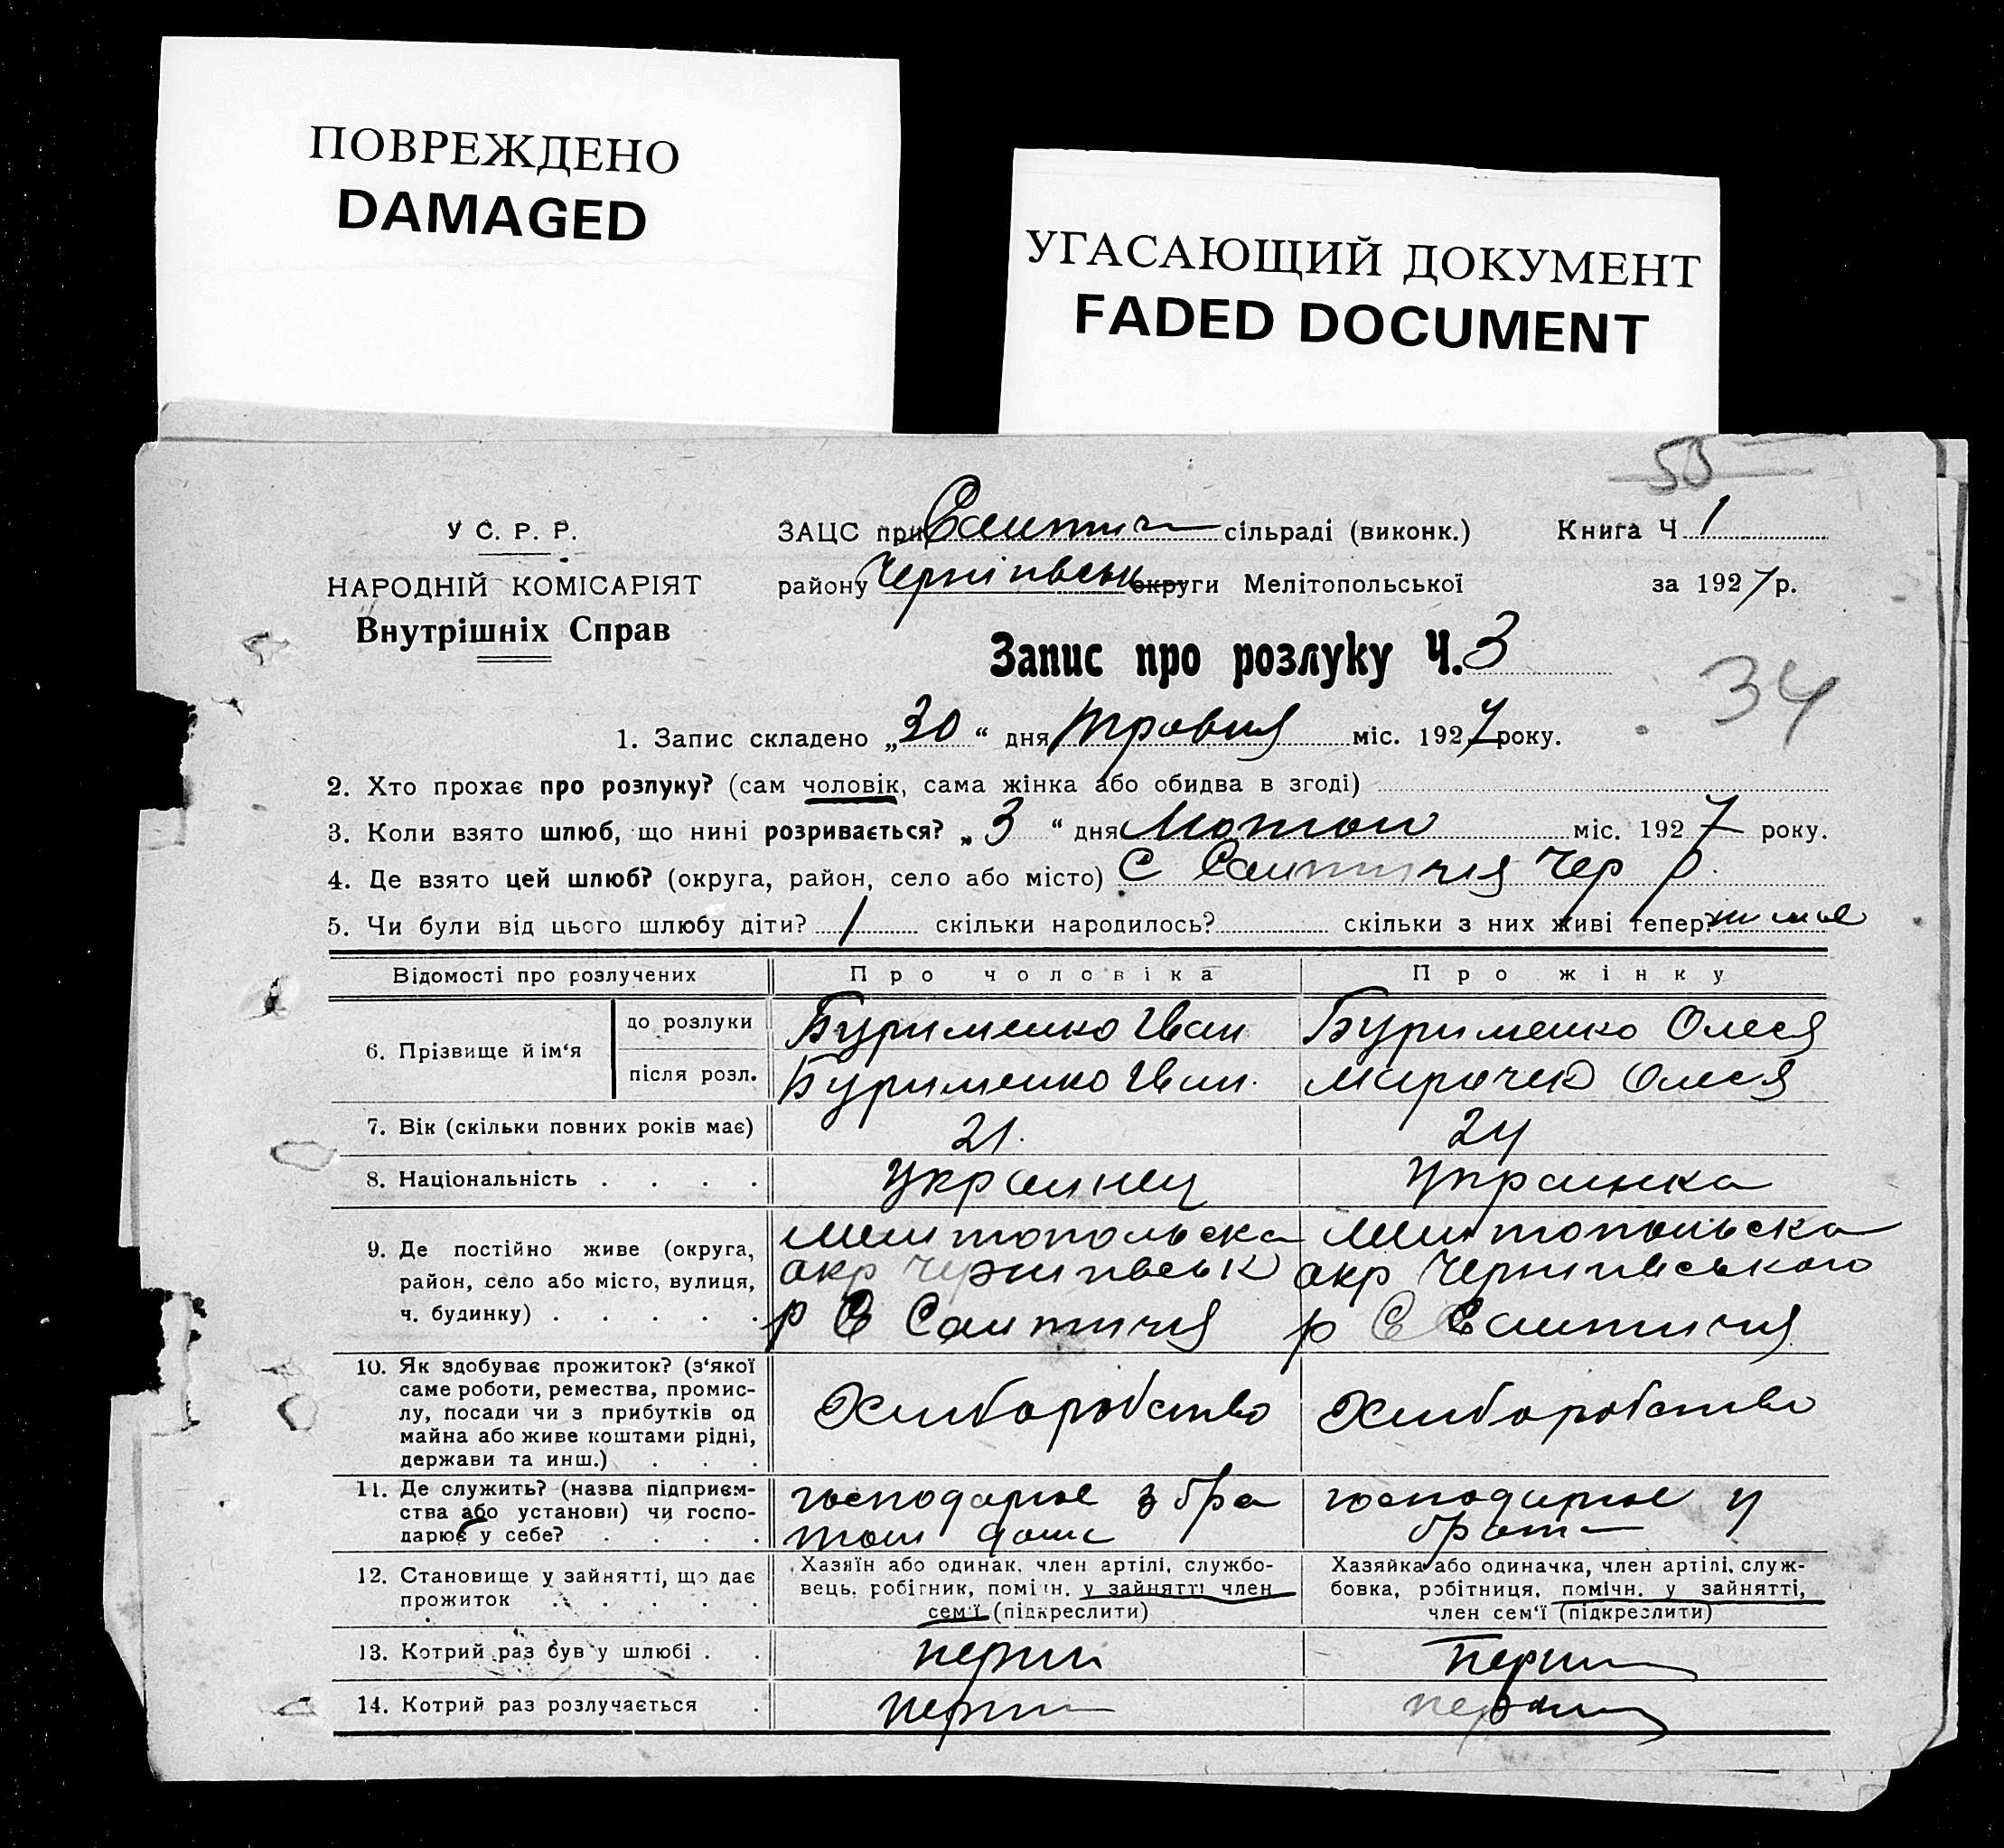 ПОВРЕЖДЕНО
DAMAGED
УГАСАЮЩИЙ ДОКУМЕНТ
FADED DOCUMENT
55
У С. Р. Р.
НАРОДНІЙ КОМІСАРІЯТ
Внутрішніх Справ
ЗАЦС при сільраді (виконк.)
району Чернігівськ округи Мелітопольської
Книга Ч 1
за 1927 р.
Запис про розлуку Ч. 3
34
1. Запис складено „30“ дня травня міс. 1927 року.
2. Хто прохає про розлуку? (сам чоловік, сама жінка або обидва в згоді)
3. Коли взято шлюб, що нині розривається? „3“ дня Лютого міс. 1927 року.
4. Де взято цей шлюб? (округа, район, село або місто) С Салтичия Чер р.
5. Чи були від цього шлюбу діти? 1 скільки народилось? скільки з них живі тепер?
Відомості про розлучених Про чоловіка Про жінку
6. Прізвище й ім‘я
до розлуки Буряменко Иван Буряменко Олеся
після розл. Буряменко Иван. Олеся
7. Вік (скільки повних років має) 21. 24
8. Національність . . . . Украинец Украинка
9. Де постійно живе (округа, район, село або місто, вулиця, ч. будинку) . . . . .
Мелитопольска
окр Чернигивськ
р С Салтичия
Мелитопольска
окр Чернигивського
р С Салтичия
10. Як здобуває прожиток? (з‘якої
саме роботи, ремества, промис-
лу, посади чи з прибутків од
майна або живе коштами рідні,
держави та инш.) . . .
Хлиборобство Хлиборобство
11. Де служить? (назва підприєм-
ства або установи) чи госпо-
дарює у себе? . . . .
господарюе з бра
том
господарюе у
брата
12. Становище у зайнятті, що дає
прожиток . . . . .
Хазяїн або одинак, член артілі, службо-
вець, робітник, помічн. у зайнятті член
сем‘ї (підкреслити)
Хазяйка або одиначка, член артілі, служ-
бовка, робітниця, помічн. у зайнятті,
член сем‘ї (підкреслити)
13. Котрий раз був у шлюбі . .
14. Котрий раз розлучається .